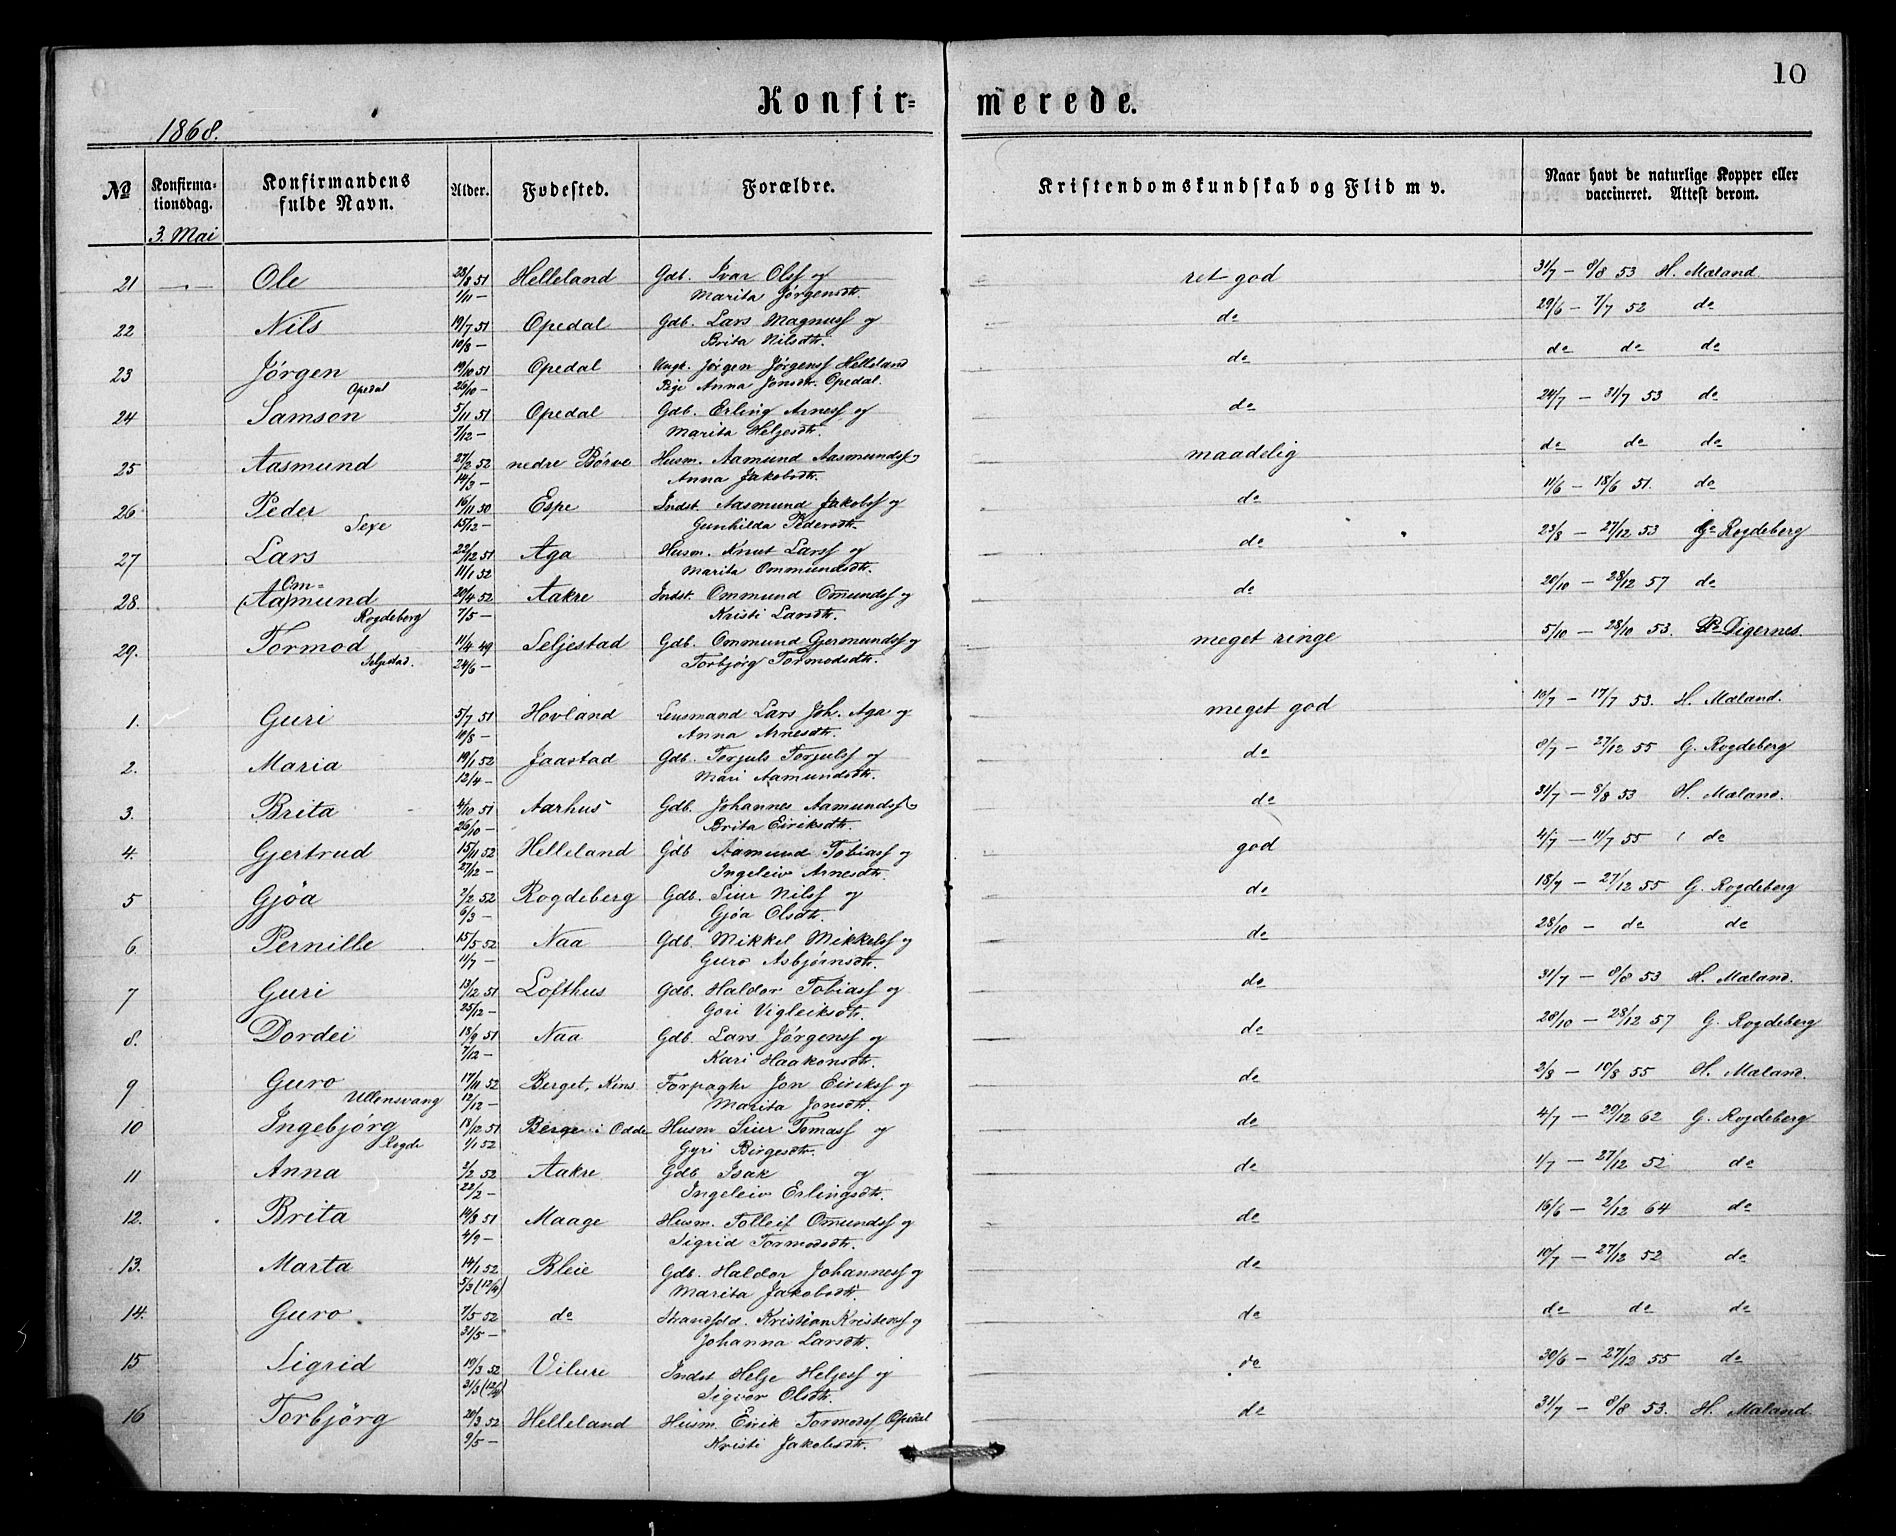 10
Konfir= merede.
1868.
№ Konfirma-tionsdag. Konfirmandens fulde Navn. Alder. Fødested. Forældre. Kristendomskundskab og Flid m v. Naar havt de naturlige Kopper eller vaccineret. Attest derom.
3. Mai
21 —〃— Ole 28/8 51 Helleland Gdb. Ivar Olsf og ret god 31/7 — 8/8 53 H. Maland
1/11 — Marita Jørgensdtr.
22 Nils 19/7 51 Opedal Gdb. Lars Magnusf og do 29/6 — 7/7 52 do
10/8 — Brita Nilsdtr.
23 Jørgen 19/10 51 Opedal Ungk. Jørgen Jørgensf Helleland do do do do
Opedal 26/10 — Pige Anna Jonsdtr. Opedal.
24 Samson 5/11 51 Opedal Gdb. Erling Arnesf og do 24/7 — 31/7 53 do
7/12 — Marita Heljesdtr.
25 Aasmund 27/2 52 nedre Børve Husm. Aamund Aasmundsf og maadelig do do do
14/3 — Anna Jakobsdtr.
26 Peder 16/11 50 Espe Indst. Aasmund Jakobsf og do 11/6 — 18/6 51. do
Sexe 15/12 — Gunhilda Pedersdtr.
27 Lars 22/12 51 Aga Husm. Knut Larsf og do 23/8 — 27/12 53 G. Rogdeberg
11/1 52 Marita Ommundsdtr.
Om=
28. (Aa)mund 20/4 52 Aakre Indst. Ommund Omundsf og do 20/10 — 28/12 57 do
Rogdeberg 7/5 — Kristi Larsdtr.
29. Tormod 11/4 49 Seljestad Gdb. Ommund Gjermundsf og meget ringe 5/10 — 28/10 53. Digernes.
Seljestad. 24/6 — Torbjørg Tormodsdtr.
1. Guri 5/7 51 Hovland Lensmand Lars Joh. Aga og meget god 10/7 — 17/7 53. H. Maland.
10/8 — Anna Arnesdtr.
2. Maria 19/1 52 Jaastad Gdb. Torjuls Torjulsf og do 8/7 — 27/12 55 G. Rogdeberg
12/4 — Mari Aamundsdtr.
3. Brita 4/10 51 Aarhus Gdb. Johannes Aamundsf og do 31/7 — 8/8 53 H. Maland.
26/10 — Brita Eiriksdtr.
4. Gjertrud 15/11 52 Helleland Gdb Aamund Tobiasf og god 4/7 — 11/7 55 do
27/12 — Ingeleiv Arnesdtr.
5 Gjøa 2/2 52 Rogdeberg Gdb. Siur Nilsf og do 18/7 — 27/12 55 G. Rogdeberg
6/3 — Gjøa Olsdtr.
6. Pernille 15/5 52 Naa Gdb. Mikkel Mikkelsf og do 28/10 — do do
11/7 — Guro Asbjørnsdtr.
7 Guri 13/12 51 Lofthus Gdb. Haldor Tobiasf og do 31/7 — 8/8 53 H. Maland.
25/12 — Gori Vigleiksdtr.
8. Dordei 18/9 51 Naa Gdb. Lars Jørgensf og do 20/10 — 28/12 57 G. Rogdeberg
7/12 — Kari Haakonsdtr.
9 Guro 17/11 52 Berget, Kins Forpagter Jon Eiriksf og do 2/8 — 10/8 55 H. Maland.
Ullensvang 12/12 — Marita Jonsdtr.
10 Ingebjørg 13/12 51 Berge i Odde Husm Siur Tomasf og do 4/7 — 29/12 62 G. Rogdeberg
Rogde 1/1 52 Gyri Birgesdtr.
11 Anna 2/2 52 Aakre Gdb Isak og do 1/7 — 27/12 52 do
22/2 — Ingeleiv Erlingsdtr.
12. Brita 14/8 51 Maage Husm. Tolleif Omundsf og do 16/6 — 2/12 64 do
4/9 — Sigrid Tormodsdtr.
13. Marta 14/1 52 Bleie Gdb. Haldor Johannesf og do 10/7 — 27/12 52 do
5/3 (12/4) Marita Jakobsdtr.
14. Guro 7/5 52 do Strandsid. Kristian Kristensf og do do do do
31/5 — Johanna Larsdtr.
15 Sigrid 19/3 52 Vilure Indst Helje Heljesf og do 30/6 — 27/12 55 do
31/3 (12/4) Sigvor Olsdtr.
16 Torbjørg 20/3 52 Helleland Husm. Eirik Tormodsf Opedal do 31/7 — 8/8 53. H. Maland.
9/5 — Kristi Jakobsdtr.